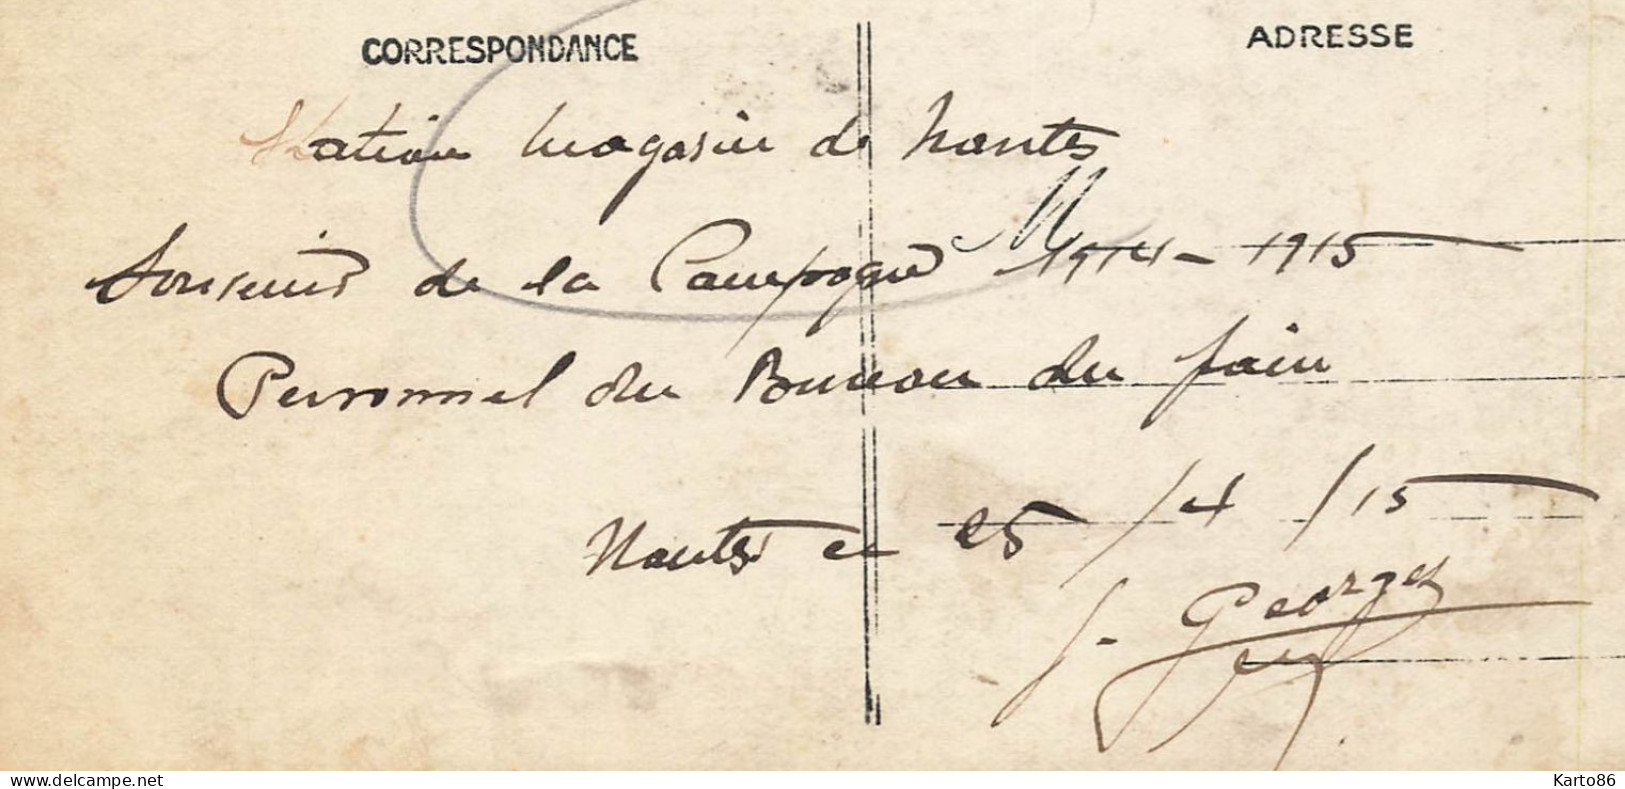 CORRESPONDANCE
ADRESSE
Station Magasin de Nantes
Souvenir de la Campagne 1914-1915
Personnel du Bureau du pain
Nantes le 25/4/15
J. Georges
www.delcampe.net
Karto86